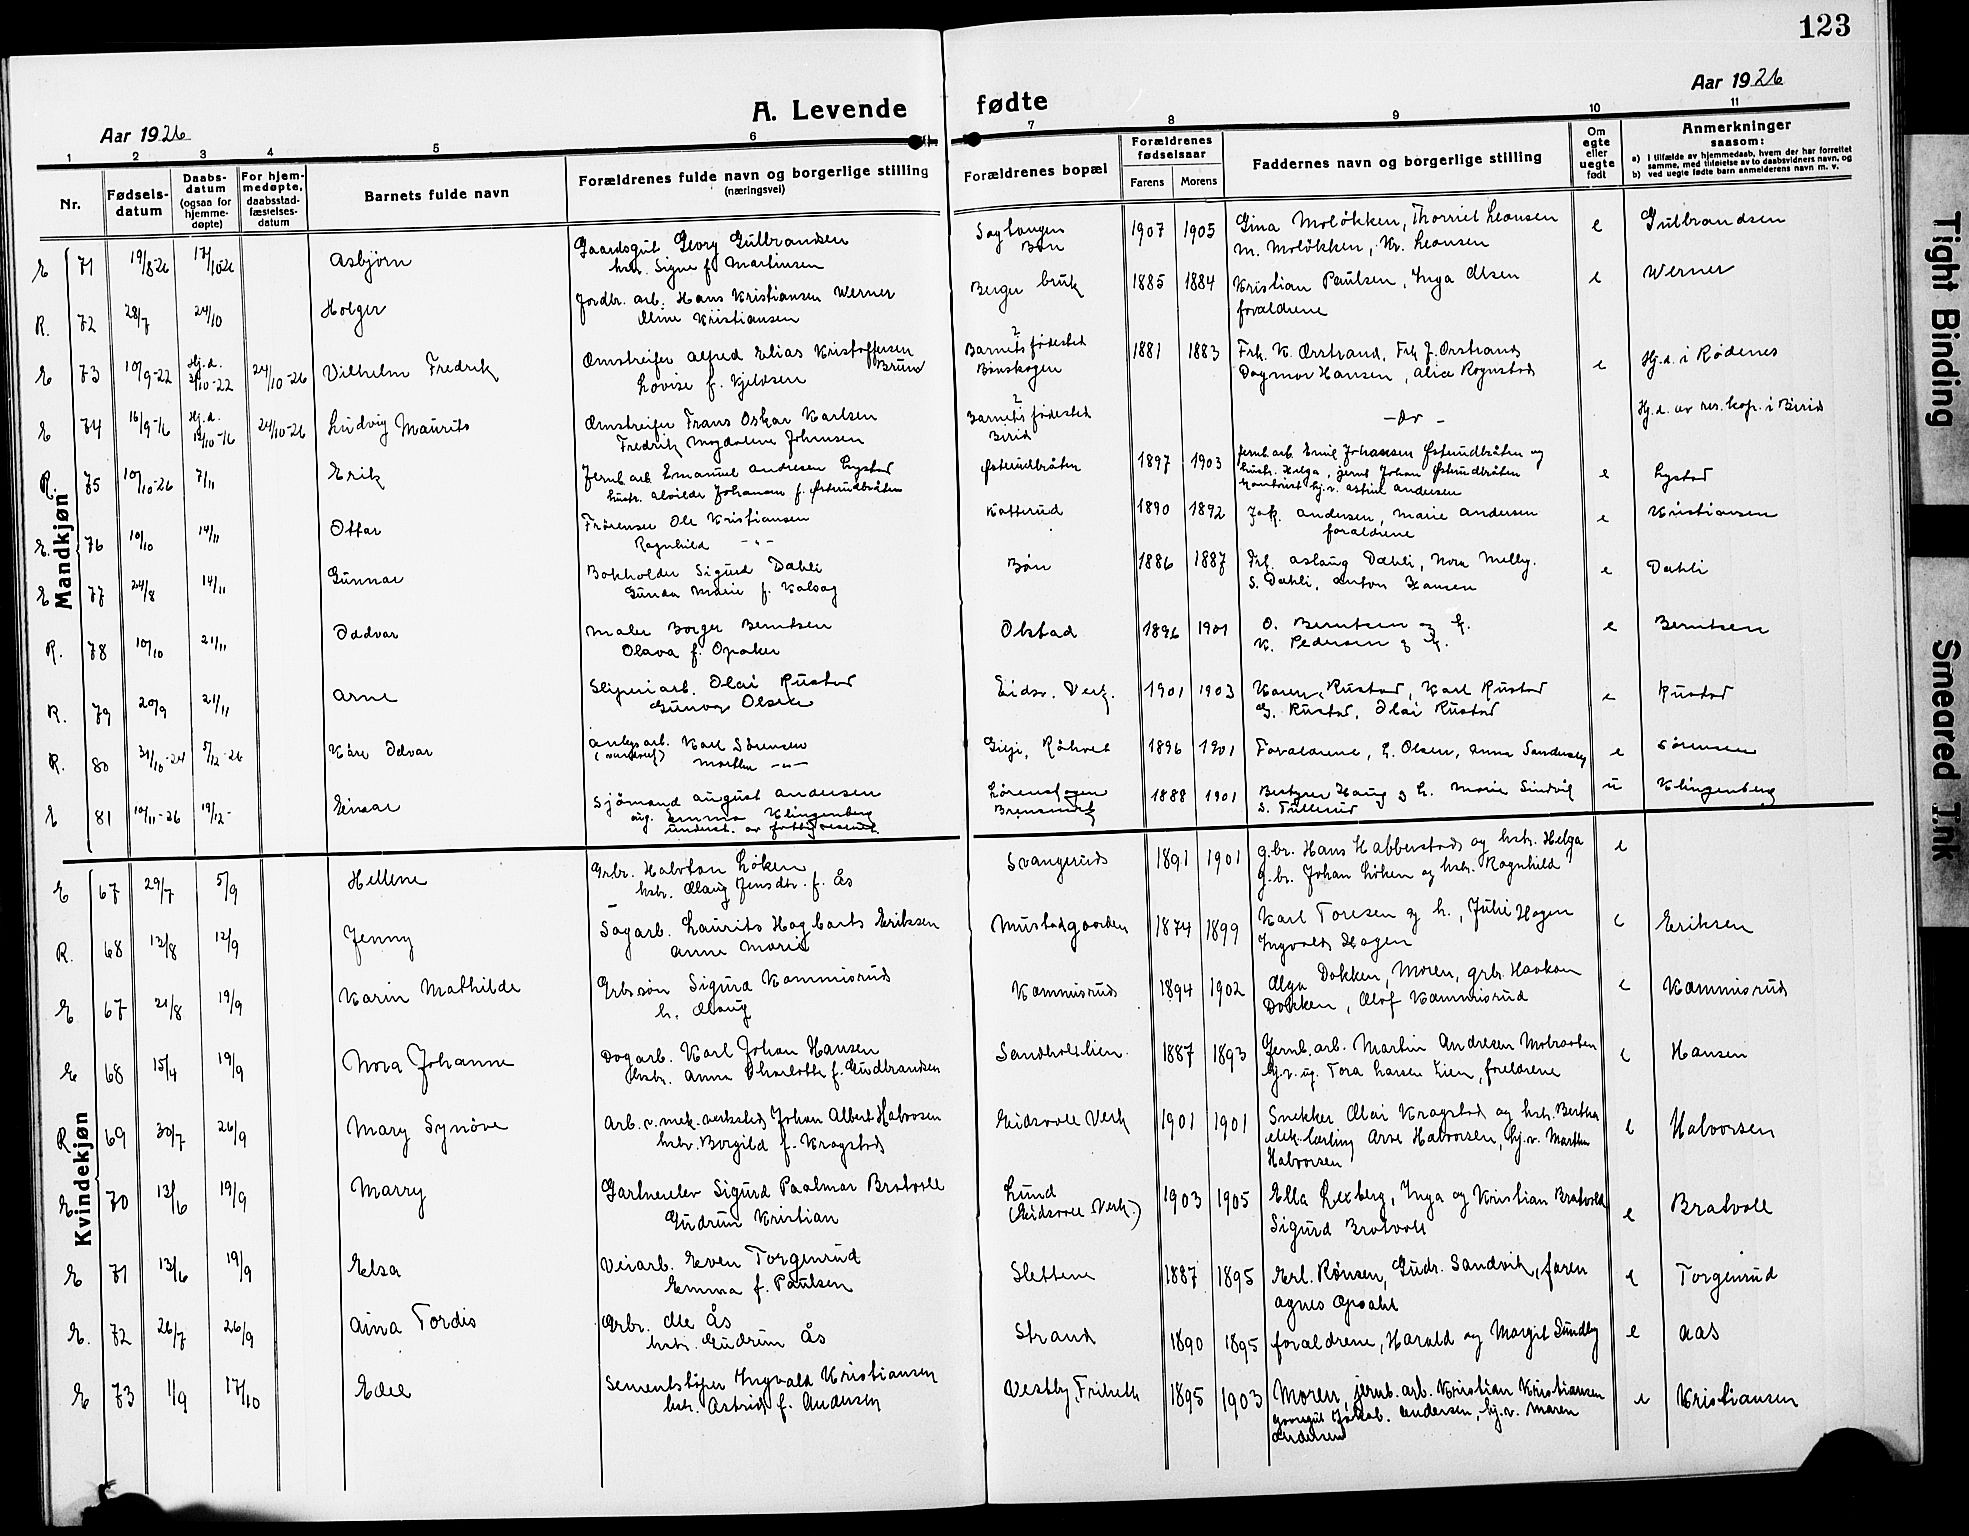 123
Aar 1926
Aar 1926
A. Levende fødte
1 2 3 4 5 6 7 8 9 10 11
Nr.
Fødsels-
datum
Daabs-
datum
(ogsaa for
hjemme-
døpte)
For hjem-
medøpte,
daabsstad-
fæstelses-
datum
Barnets fulde navn
Forældrenes fulde navn og borgerlige stilling
(næringsvei)
Forældrenes bopæl
Forældrenes
fødselsaar
Farens Morens
Faddernes navn og borgerlige stilling
Om
egte
eller
uegte
født
Anmerkninger
saasom:
a) I tilfælde av hjemmedaab, hvem der har forrettet
samme, med tilføielse av to daabsvidners navn, og
b) ved uegte fødte barn anmelderens navn m. v.
Mandkjøn
E 71 19/8-26 17/10-26 Asbjørn Gaardsgut Georg Gulbrandsen 1907 1905 Gina Moløkken, Thorriet Leonsen e Gulbrandsen
hstr. Signe f. Martinsen Bøn M. Moløkken, Kr. Leonsen
R. 72 28/7 24/10 Holger Jordbr. arb. Hans Kristiansen Werner Berger bruk 1885 1884 Kristian Paulsen, Inga Olsen e Werner
Oline Kristiansen forældrene
E 73 10/9-22 Hj.d. 24/10-26 Vilhelm Fredrik Omstreifer Alfred Elias Kristoffersen Barnets fødested 1881 1883 Frk. K. Ørstrand, Frk J. Ørstrand e Hj.d. i Rødenes
/10-22 Brun
Lovise f. Kjeldsen Bønskogen Dagmar Hansen, Alice Rognstad
E 74 16/9-16 Hj.d. 24/10-26 Ludvig Maurits Omstreifer Frans Oskar Karlsen Barnets fødested - do - Hj.d. av res. kap. i Birid
/10-16 Fredrik Magdalene Johnsen Birid
R. 75 10/10-26 7/11 Erik Jernb arb Emanuel Andresen Lystad Østerudbråten 1897 1903 Jernb arb Emil Johansen Østerudbråten og e Lystad
hustr. Alvilde Johansen f. Østerudbråten hustr. Helga, jernb Johan Østerudbråten
hj. v. Astrid Andersen
E. 76 10/10 14/11 Ottar Ole Kristiansen Katterud 1890 1892 Jak. Andersen, Marie Andersen e Kristiansen
Ragnhild -"- forældrene
E 77 24/8 14/11 Gunnar Bokholder Sigurd Dæhli Bøn 1886 1887 Frk. Aslaug Dæhli, Nora Melby. e Dæhli
Gunda Marie f. Kalsag S. Dæhli, Anton Hansen
R. 78 10/10 21/11 Oddvar Maler Borger Berntsen Olstad 1896 1901 O. Berntsen og h. e Berntsen
Olava f. Opaker K. Pedersen og h.
R. 79 20/9 21/11 Arne Sliperiarb. Olai Rustad Eidsv. Verk. 1901 1903 Karen Rustad, Karl Rustad e Rustad
Gunvor Olsen G. Rustad, Olai Rustad
R. 80 31/10-24 5/12-26 Kåre Odvar Karl Sørensen 1896 1901 Forældrene, E. Olsen, Anna Sandersby e Sørensen
Marthe -"-
E 81 10/11-26 19/12- Einar Sjømand August Andersen 1888 1901 Bestyrer Haug og h. Marie Sindvik u Klingenberg
ug. Emma Klingenberg S. Tullerud
underst. av fattigvesenet
Kvindekjøn
E 67 29/7 5/9 Hellene Grbr. Halvdan Løken Svangerud 1891 1901 g.br. Hans Habberstad og hstr. Helga e
hstr. Olaug Jensdtr. f. Ås g.br. Johan Løken og hstr. Ragnhild
R. 68 12/8 12/9 Jenny Sagarb. Laurits Hagbarts Eriksen Mustadgaarden 1874 1899 Karl Toresen og h., Julie Hagen e Eriksen
Anne Marie Ingvald Hagen
E 67 21/8 19/9 Karin Mathilde Grbrsøn Sigurd Kammisrud Kammisrud 1894 1902 Olga Dokken, Moren, grbr. Haakon e Kammisrud
h. Olaug Dokken, Olof Kammisrud
E 68 15/4 19/9 Nora Johanne Dagarb. Karl Johan Hansen Sandholtlien. 1887 1893 Jernb. arb. Martin Andresen Mobraaten e Hansen
hstr. Anna Charlotte f. Gudbrandsen hj. v. ug. Tora Larsen Lien, foreldrene
R 69 30/7 26/9 Mary Synøve Arb. v. mek. verksted Johan Albert Halvorsen Eidsvold Verk 1901 1901 Snekker Olai Kragstad og hstr. Bertha e Halvorsen
hstr. Borgild f. Kragstad elek. lærling Arve Halvorsen, hj. v. Marthe
Halvorsen
E. 70 12/6 19/9 Marry Gartnerelev Sigurd Paalmar Bratvoll Lund 1903 1905 Ella Lexberg, Inga og Kristian Bratvold e Bratvoll
Gudrun Kristian (Eidsvoll Verk.) Sigurd Bratvoll
E 71 13/6 19/9 Elsa Veiarb. Even Torgenrud Slettene 1887 1895 Erl. Rønsen, Gudr. Sandvik, faren e Torgenrud
Emma f. Paulsen Agnes Opsahl
E. 72 26/7 26/9 Aina Tordis Grbr. Ole Ås Strand 1890 1895 forældrene, Harald og Margit Sundby e Aas
hstr. Gudrun Ås
E 73 1/9 17/10 Edel Sementstøper Ingvald Kristiansen Vestby, Frihetk 1895 1903 Moren, jernb. arb. Kristian Kristiansen e Kristiansen
hstr. Astrid f. Andersen Jakob. Andersen, hj. v. Maren
Andersen
Tight Binding
Smeared Ink